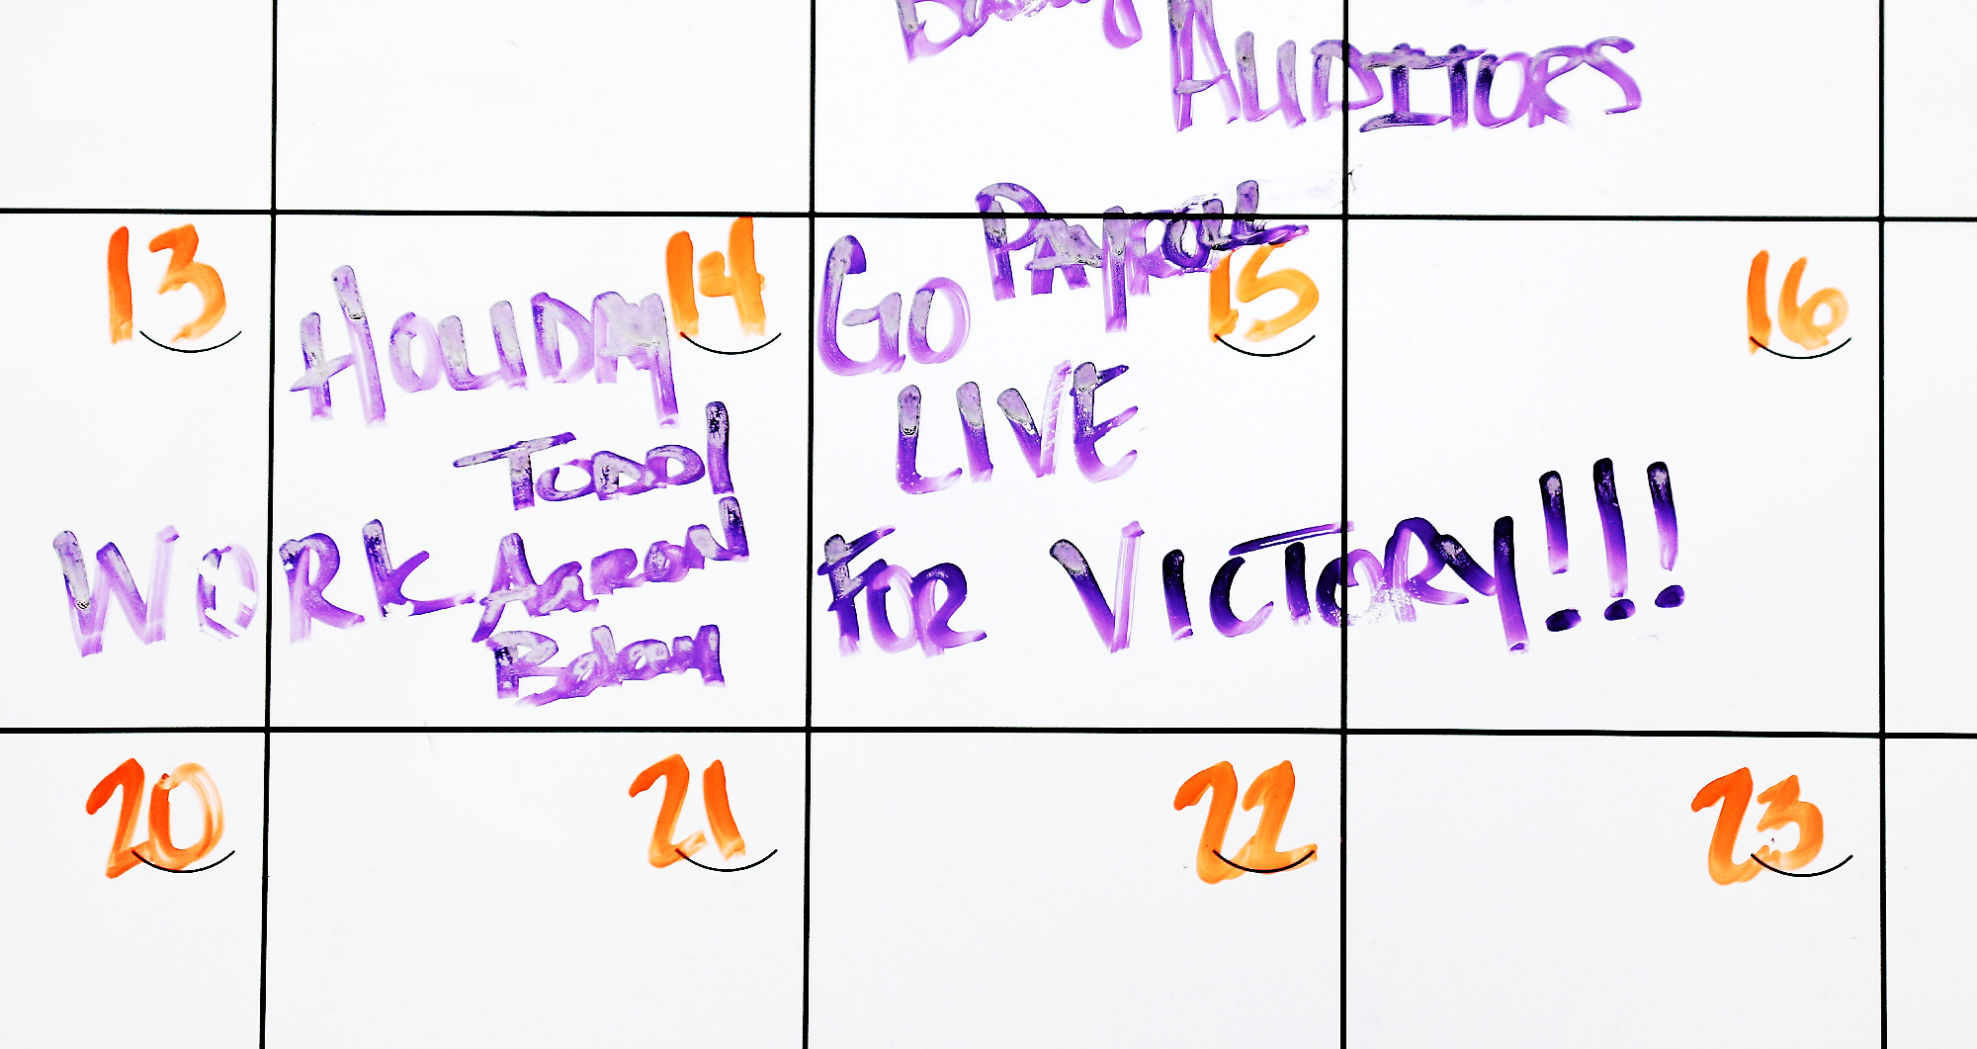 AUDITORS
PAYROLL
13
HOLIDAY
14
GO
15
16
LIVE
TODD
WORK
FOR VICTORY!!!
AaRON
20
21
22
23